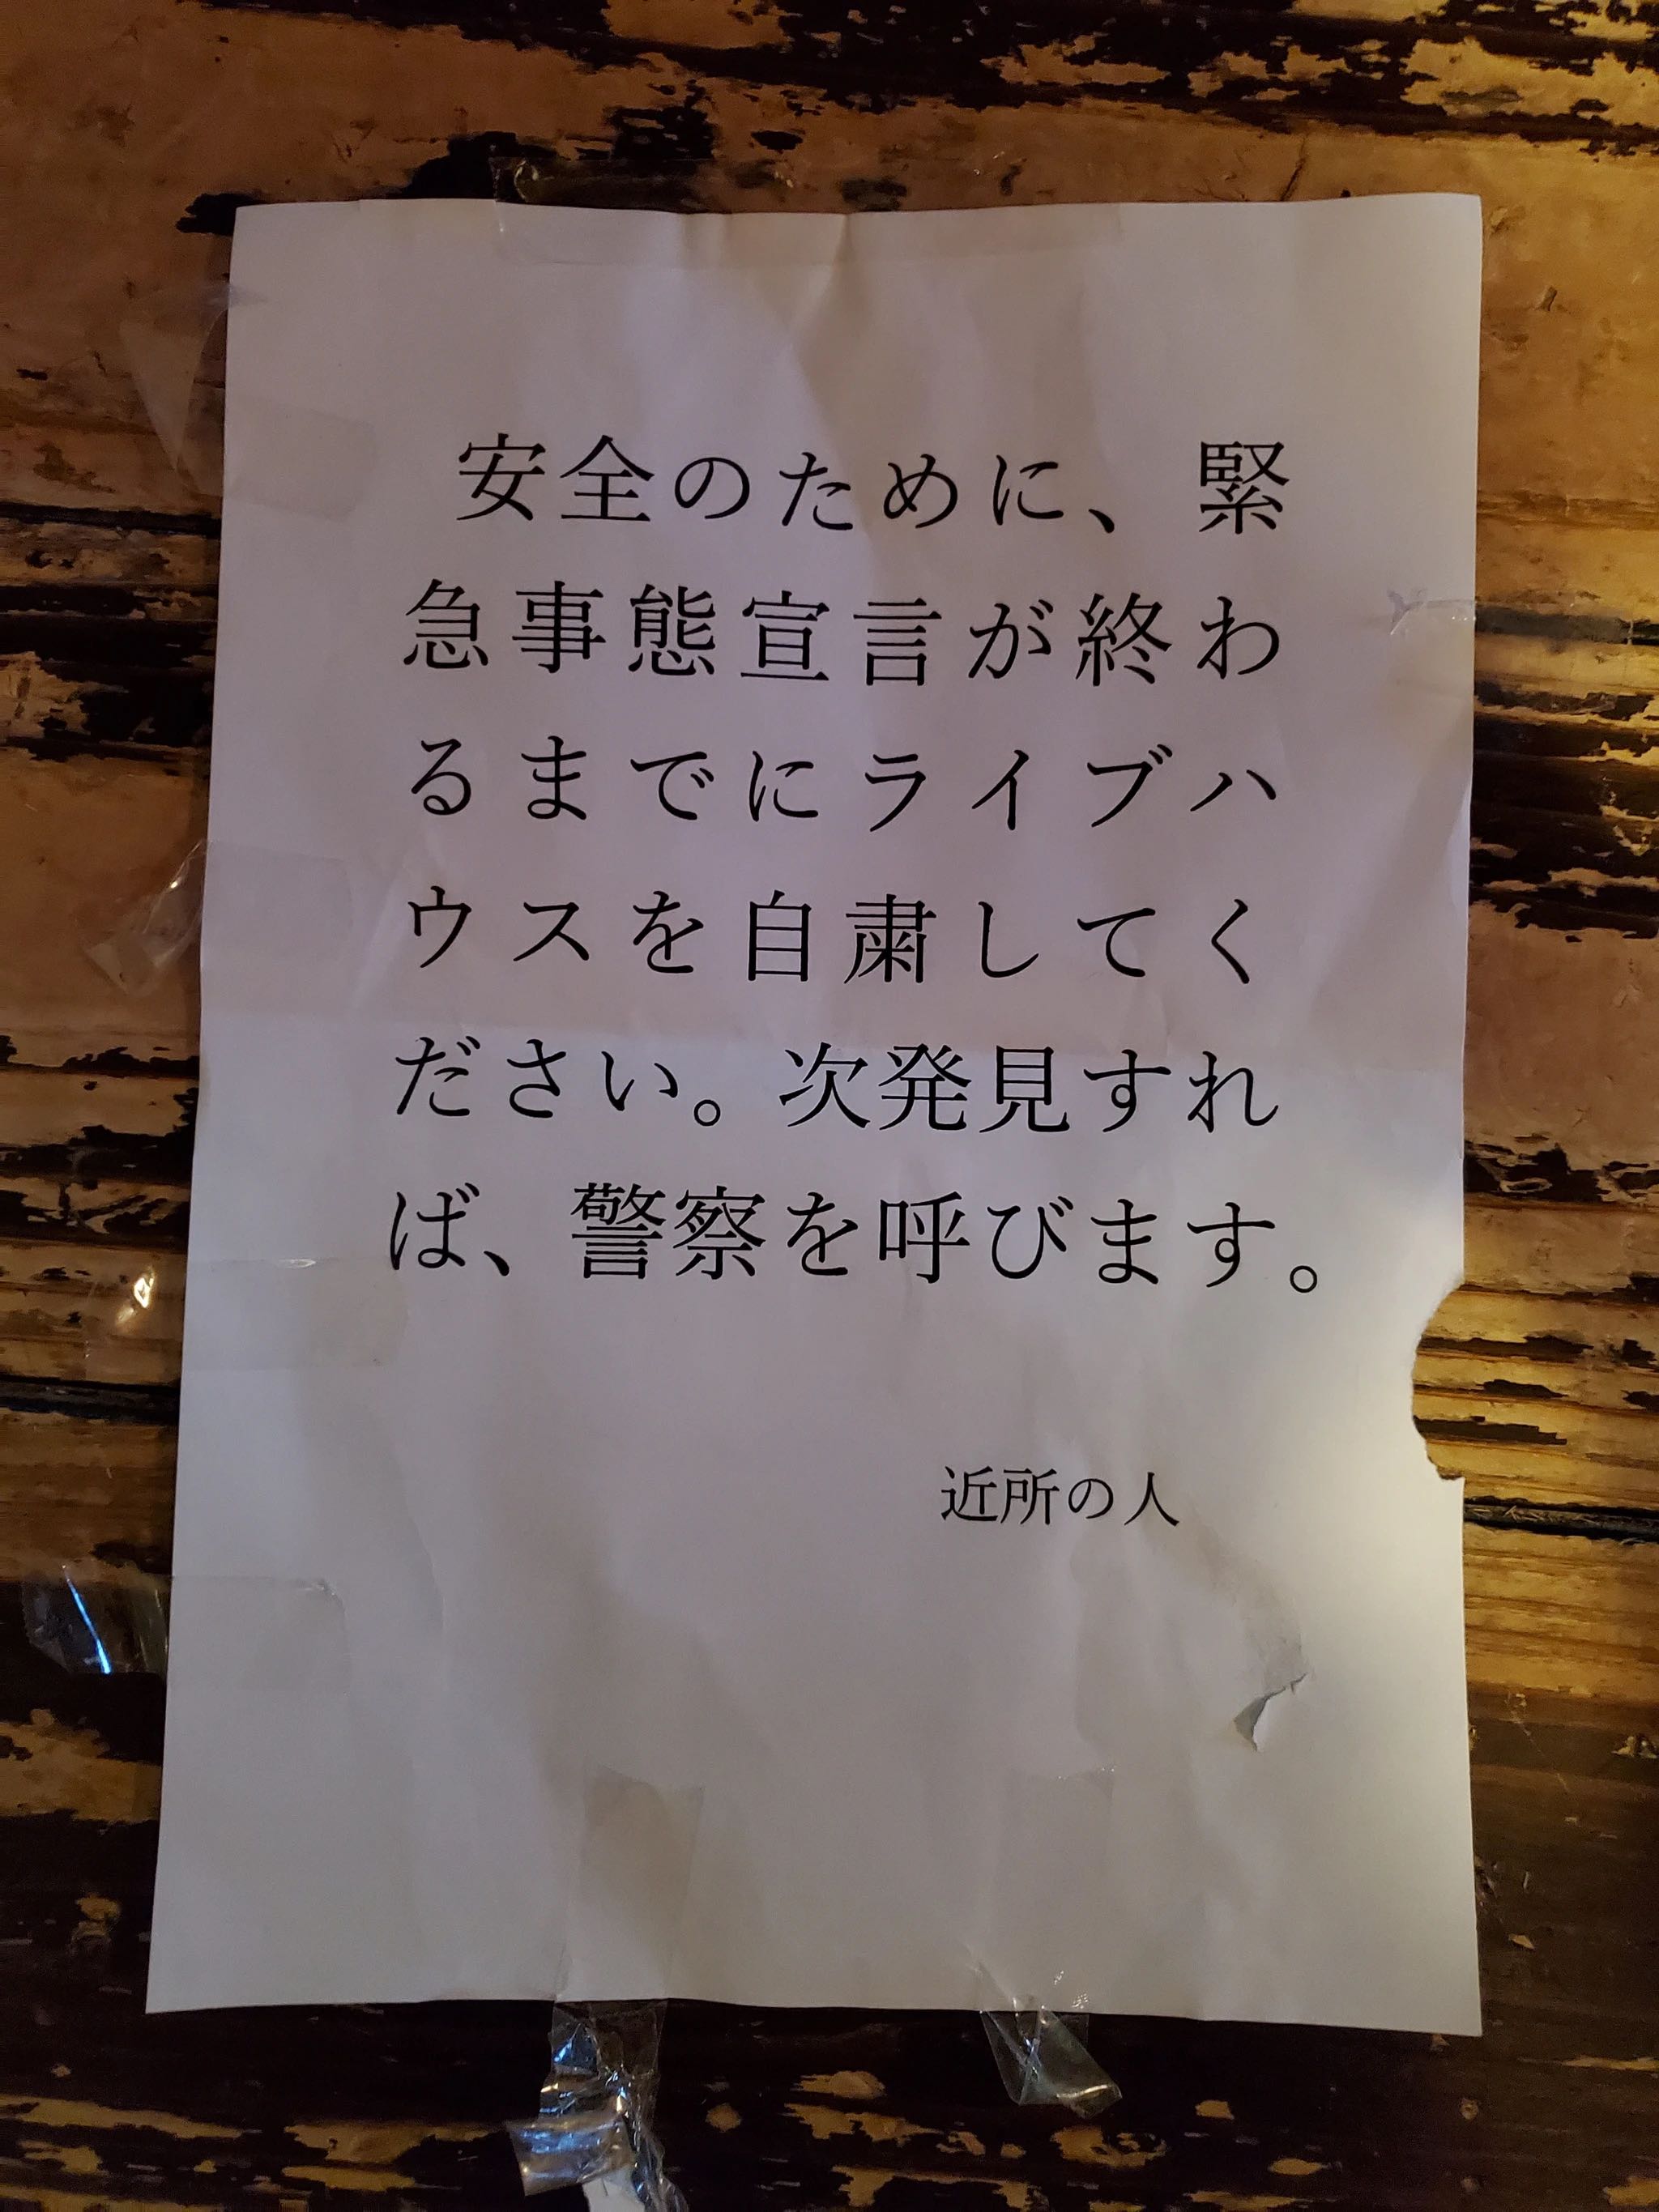 安全のために、緊
急事態宣言が終わ
るまでにライブハ
ウスを自粛してく
ださい。次発見すれ
ば、警察を呼びます。
近所の人